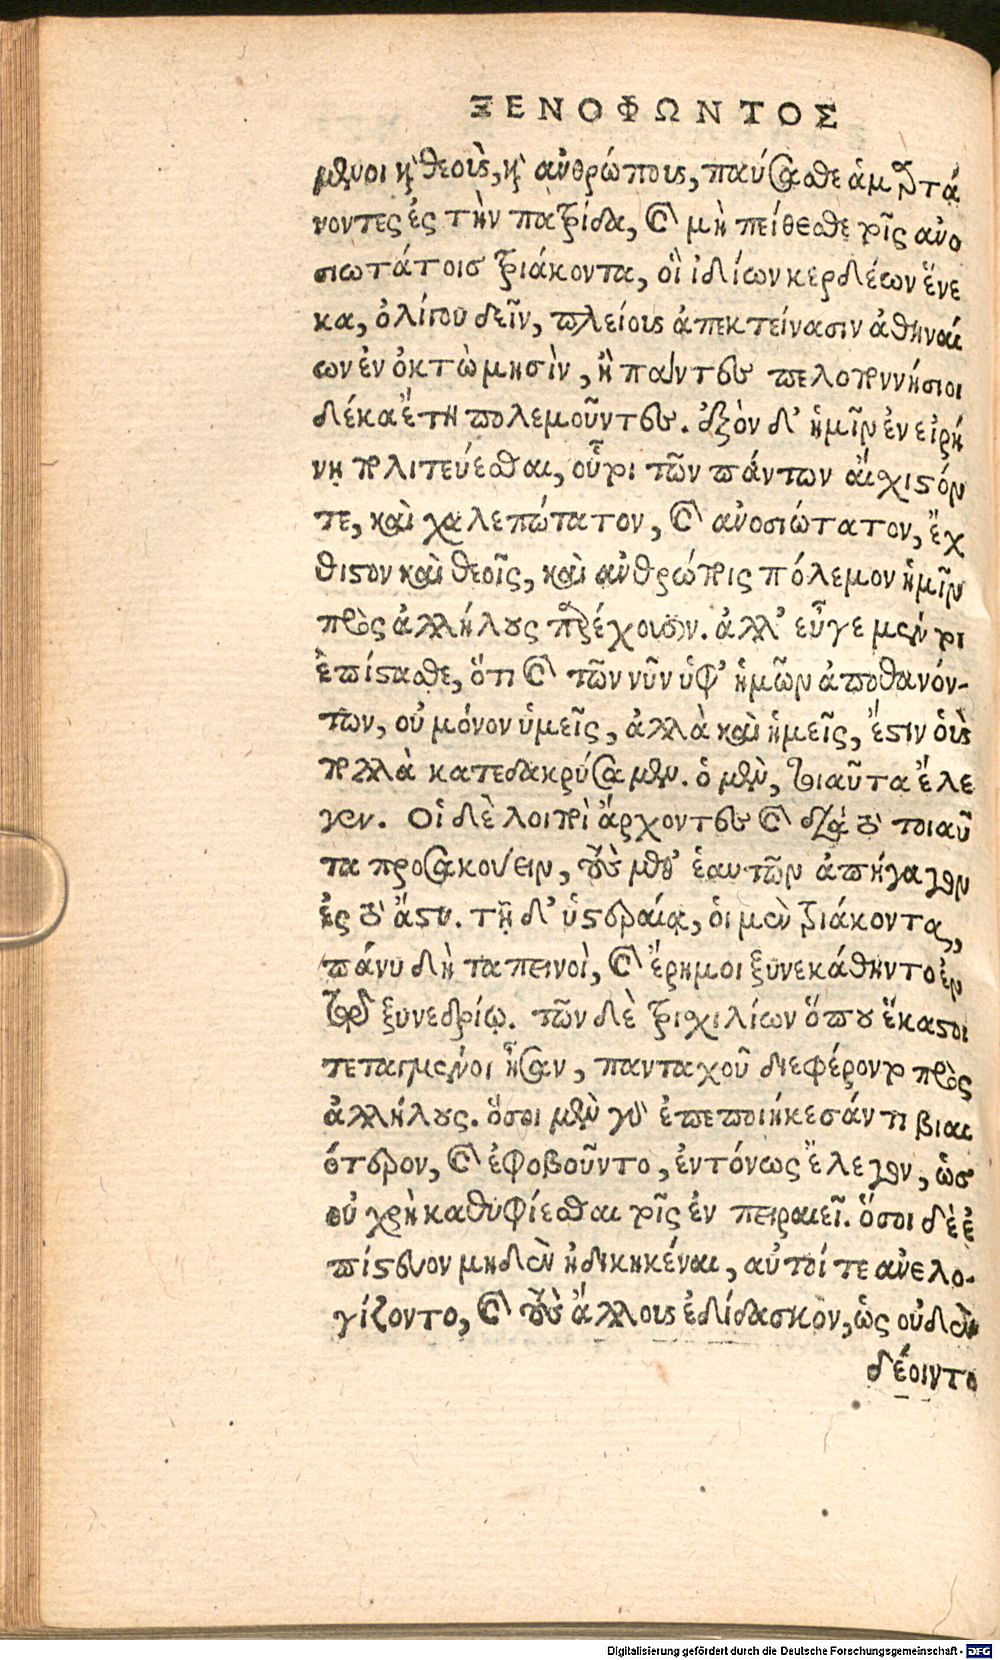 ΞΕΝΟΦΩΝΤΟΣ
μενοι καὶ θεοὺς, καὶ ἀνθρώπους, παύσασθε ἁμαρτά
νοντες ἐς τὴν πατρίδα, καὶ μὴ πείθεσθε τοῖς ἀνο
σιωτάτοις τριάκοντα, οἳ ἰδίων κερδέων ἕνε
κα, ὀλίγου δεῖν, πλείους ἀπεκτείνασιν ἀθηναί
ων ἐν ὀκτὼ μησὶν, ἢ πάντες πελοποννήσιοι
δέκα ἔτη πολεμοῦντες. ἐξὸν δ' ἡμῖν ἐν εἰρή
νῃ πολιτεύεσθαι, οὗτοι τῶν πάντων αἴχιστόν
τε, καὶ χαλεπώτατον, καὶ ἀνοσιώτατον, ἔχ
θιστον καὶ θεοῖς, καὶ ἀνθρώποις πόλεμον ἡμῖν
πρὸς ἀλλήλους παρέχουσιν. ἀλλ' εὖγε μέντοι
ἐπίστασθε, ὅτι καὶ τῶν νῦν ὑφ' ἡμῶν ἀποθανόν-
των, οὐ μόνον ὑμεῖς, ἀλλὰ καὶ ἡμεῖς, ἔστιν οὓς
πολλὰ κατεδακρύσαμεν. ὁ μὲν, τοιαῦτα ἔλε
γεν. Οἱ δὲ λοιποὶ ἄρχοντες καὶ διὰ τὸ τοιαῦ
τα προσακούειν, τοὺς μεθ' ἑαυτῶν ἀπήγαγον
ἐς τὸ ἄστυ. τῇ δ' ὑστεραίᾳ, οἱ μὲν τριάκοντα,
πάνυ δὴ ταπεινοὶ, καὶ ἔρημοι ξυνεκάθηντο ἐν
τῷ ξυνεδρίῳ. τῶν δὲ τριχιλίων ὅπου ἕκαστοι
τεταγμένοι ἦσαν, πανταχοῦ διεφέροντο πρὸς
ἀλλήλους. ὅσοι μὲν γὰρ ἐπεποιήκεσάν τι βιαι
ότερον, καὶ ἐφοβοῦντο, ἐντόνως ἔλεγον, ὡς
οὐ χρὴ καθυφίεσθαι τοῖς ἐν πειραιεῖ. ὅσοι δὲ ἐ
πίστευον μηδὲν ἠδικηκέναι, αὐτοί τε ἀνελο-
γίζοντο, καὶ τοὺς ἄλλους ἐδίδασκον, ὡς οὐδὲν
δέοιντο
Digitalisierung gefördert durch die Deutsche Forschungsgemeinschaft - DFG